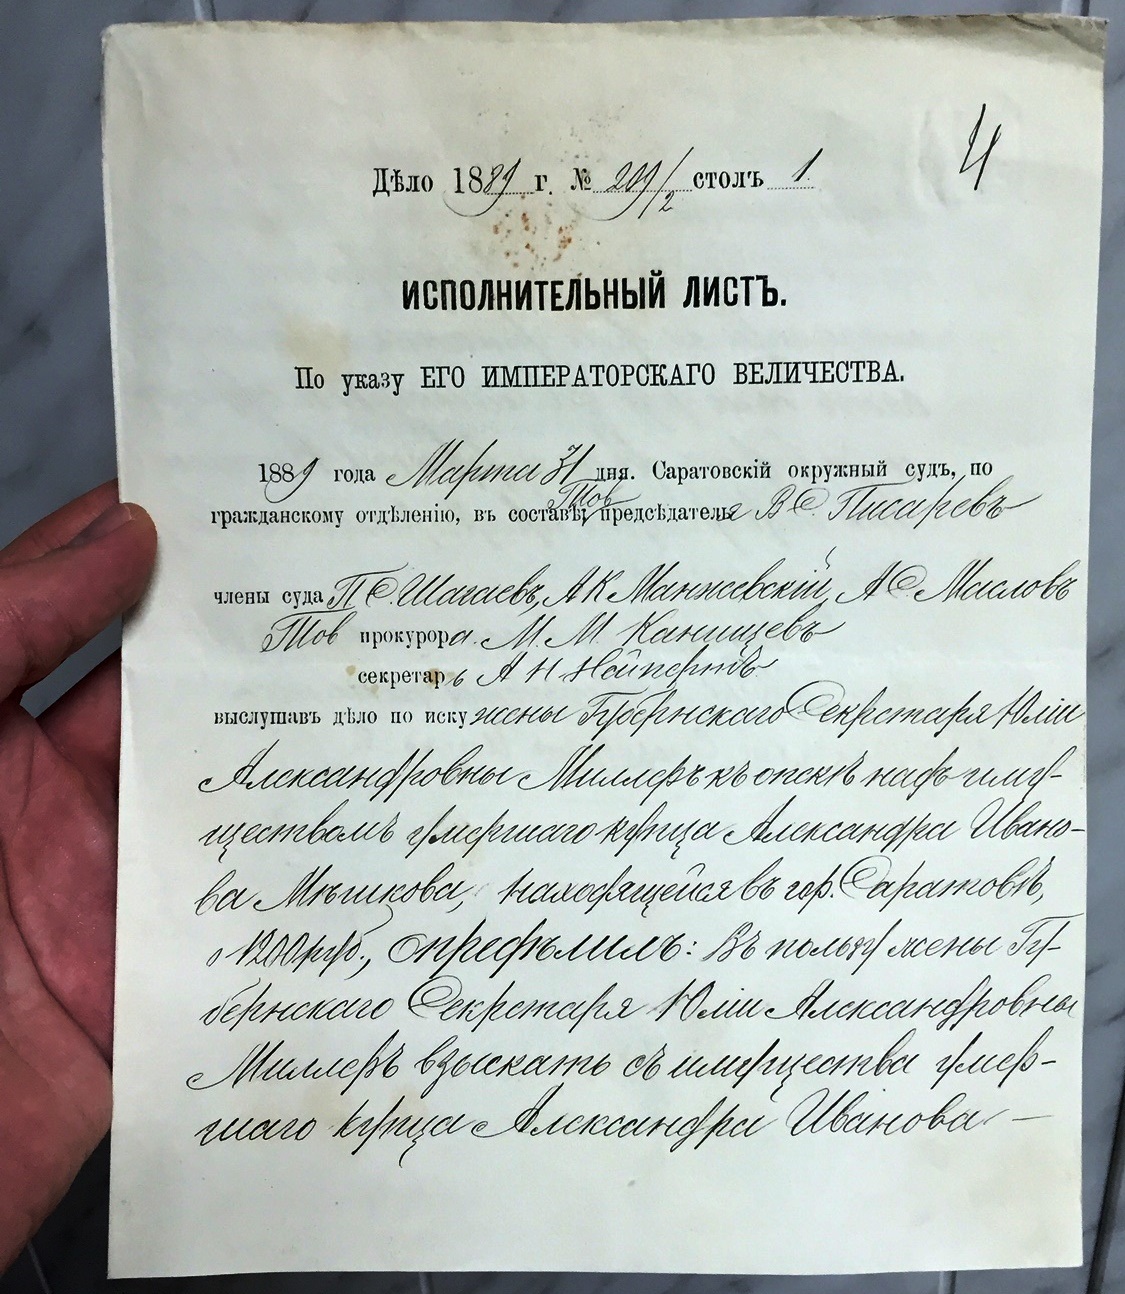 4
Дѣло 1889 г. № 209/2 столъ 1
ИСПОЛНИТЕЛЬНЫЙ ЛИСТЪ.
По указу ЕГО ИМПЕРАТОРСКАГО ВЕЛИЧЕСТВА.
1889 года Марта 31 дня. Саратовскій окружный судъ, по
Тов
гражданскому отдѣленію, въ составѣ: предсѣдателя В С. Писаревъ
члены суда П С. Шагаевъ, А К Манжевскій, А С. Масловъ
Тов прокурора. М. М. Канищевъ
секретарь А Н Нейпертъ
выслушавъ дѣло по иску жены Губернскаго Секретаря Юліи
Александровны Миллеръ къ опекѣ надъ иму-
ществомъ умершаго купца Александра Ивано-
ва Мѣшкова, находящейся въ гор. Саратовѣ,
о 1200 руб., опредѣлилъ: Въ пользу жены Гу-
бернскаго Секретаря Юліи Александровны
Миллеръ взыскать съ имущества умер-
шаго купца Александра Иванова —